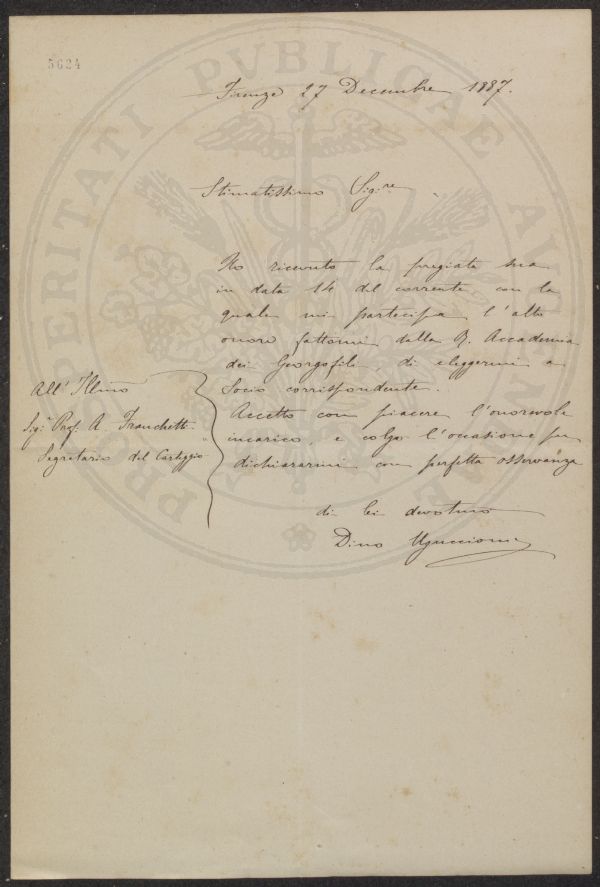 5624
PROSPERITATI PUBLICAE AUGENDAE
Firenze 27 Decembre 1887.
Stimatissimo Sig.re
Ho ricevuto la pregiata sua
in data 14 del corrente, con la
quale mi partecipa l'alto
onore fattomi dalla R. Accademia
dei Georgofili, di eleggermi a
Socio corrispondente.
Accetto con piacere l'onorevole
incarico, e colgo l'occasione per
dichiararmi con perfetta osservanza
di lei devotmo
Dino Uguccioni
All' Illmo
Sig.r Prof. A. Franchetti
Segretario del Carteggio